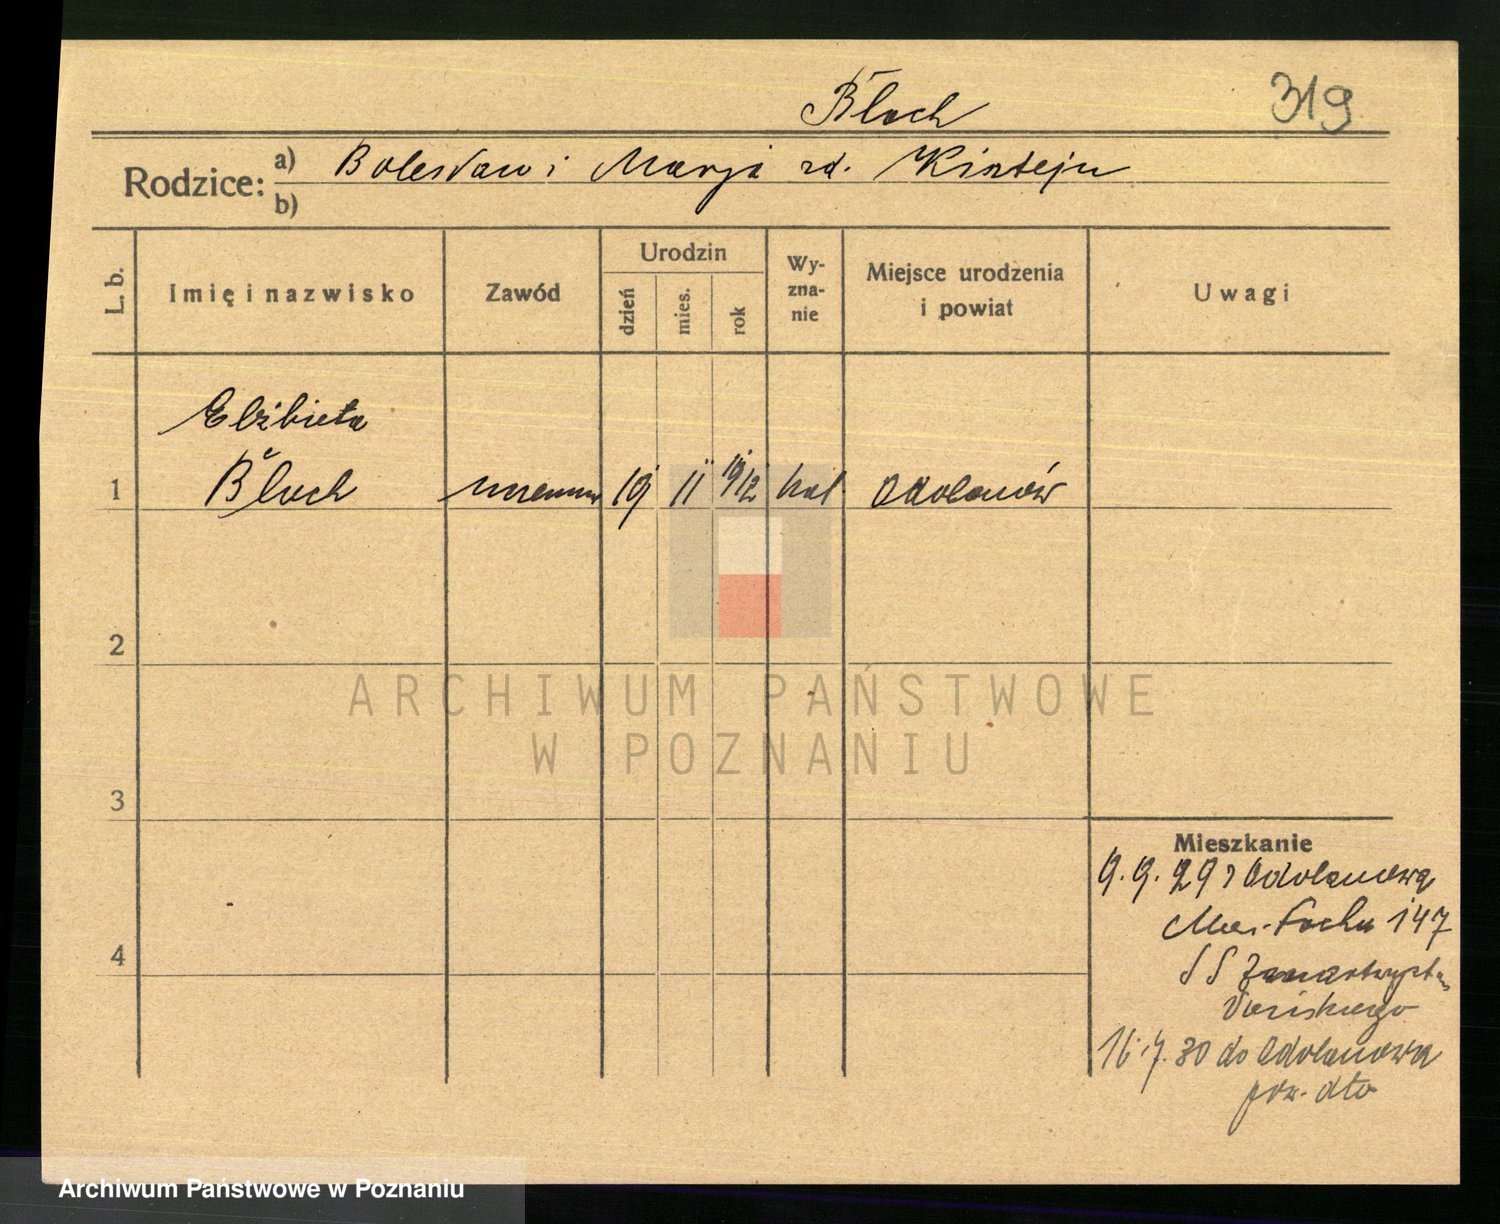 Błoch
319
Rodzice: a) Bolesław i Marja zd.
b)
L. b. Imię i nazwisko Zawód Urodzin dzień mies. rok Wy-zna-nie Miejsce urodzenia i powiat Uwagi
Elżbieta
1 Błoch uczennica 19 11 1912 kat Odolanów
2
ARCHIWUM PAŃSTWOWE
W POZNANIU
3
Mieszkanie
9.9.29 z Odolanowa
Mar. Focha 147
SS Zmartwychw
4
16.7.30 do Odolanowa
pow. dto
Archiwum Państwowe w Poznaniu